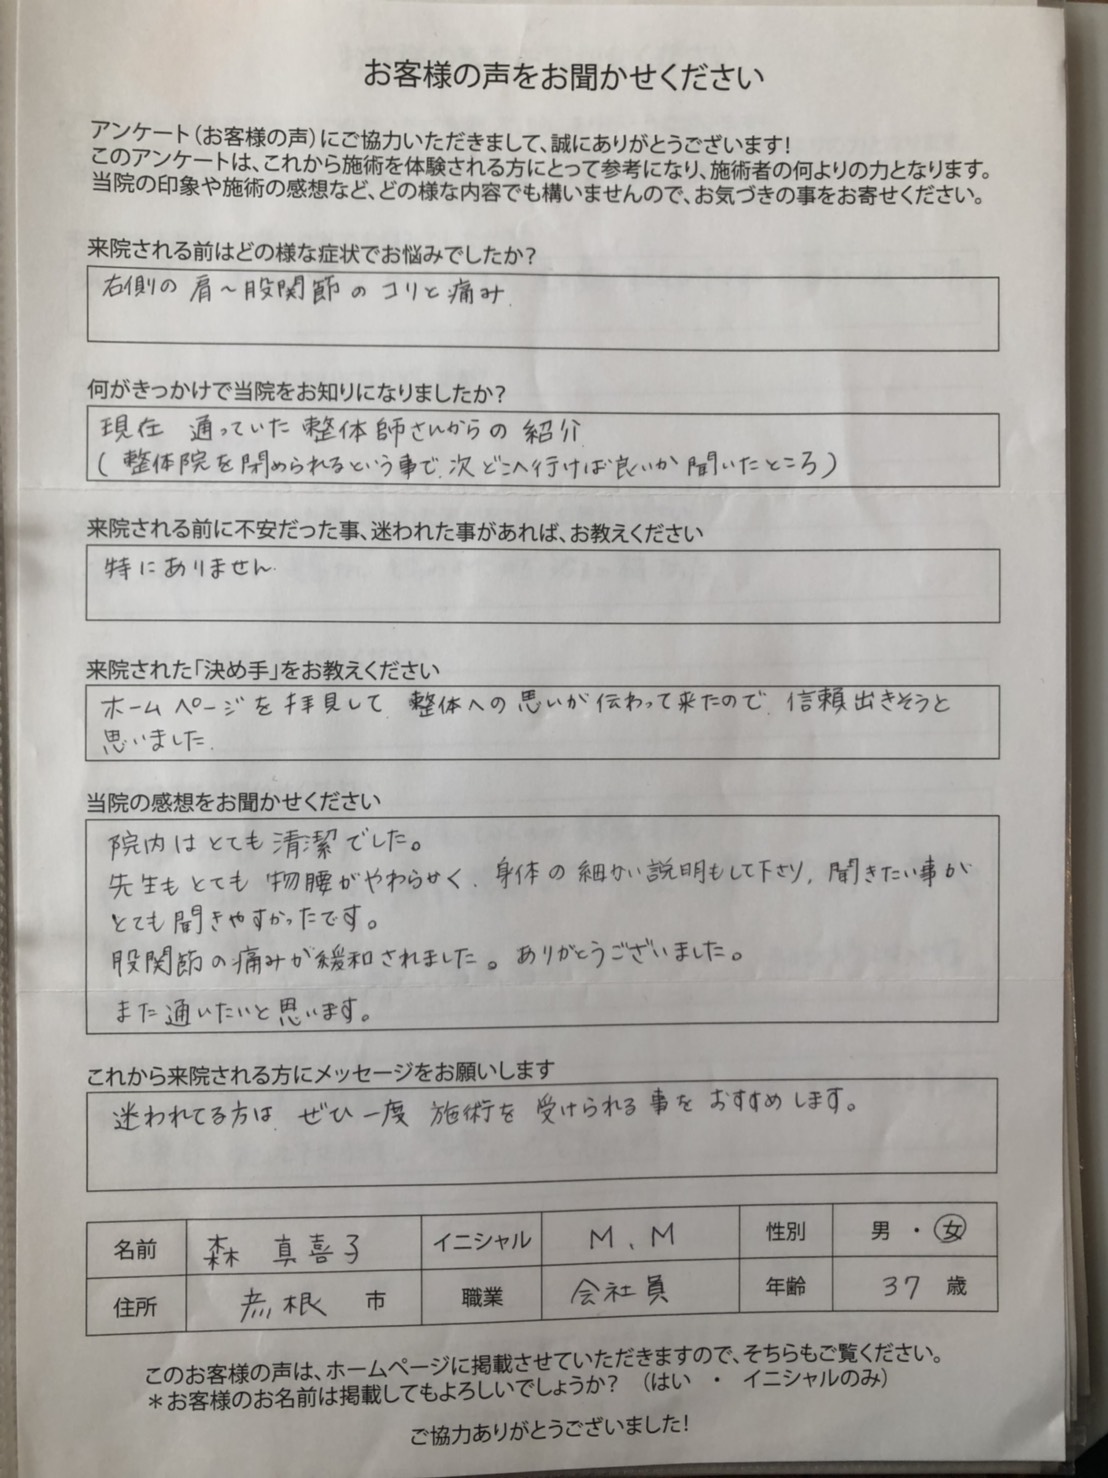 お客様の声をお聞かせください
アンケート(お客様の声)にご協力いただきまして、誠にありがとうございます!
このアンケートは、これから施術を体験される方にとって参考になり、施術者の何よりの力となります。
当院の印象や施術の感想など、どの様な内容でも構いませんので、お気づきの事をお寄せください。
来院される前はどの様な症状でお悩みでしたか?
右側の 肩〜股関節の コリと痛み.
何がきっかけで当院をお知りになりましたか?
現在 通っていた 整体師さんからの 紹介
(整体院を閉められるという事で、次どこへ行けば良いか 聞いたところ)
来院される前に不安だった事、迷われた事があれば、お教えください
特にありません.
来院された「決め手」をお教えください
ホームページを拝見して 整体への思いが伝わって来たので、信頼出きそうと
思いました.
当院の感想をお聞かせください
院内はとても清潔でした。
先生もとても 物腰がやわらかく、身体の細かい説明もして下さり、聞きたい事が
とても聞きやすかったです。
股関節の痛みが緩和されました。ありがとうございました。
また通いたいと思います。
これから来院される方にメッセージをお願いします
迷われてる方は ぜひ一度 施術を受けられる事をおすすめします。
名前 森 真喜子 イニシャル M.M 性別 男 ・ 女
住所 彦根 市 職業 会社員 年齢 37 歳
このお客様の声は、ホームページに掲載させていただきますので、そちらもご覧ください。
*お客様のお名前は掲載してもよろしいでしょうか? (はい ・ イニシャルのみ)
ご協力ありがとうございました!